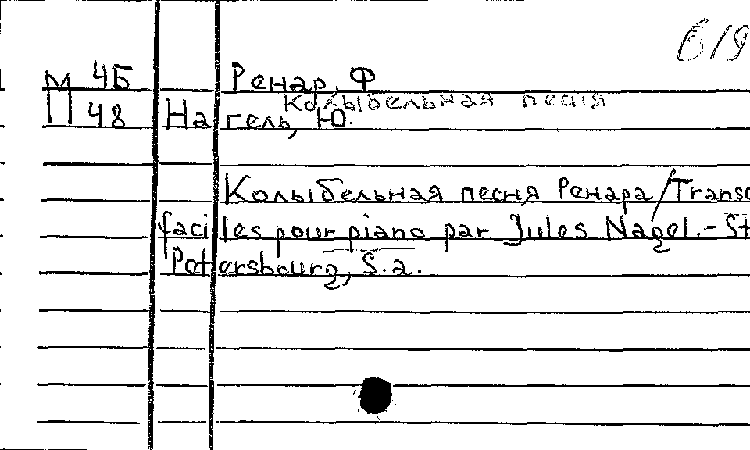 619
М 4Б Ренар, Ф
Колыбельная песня
П 48 Нагель, Ю.
Колыбельная песня Ренара/Transc
faciles pour piano par Jules Nagel.-St
Petersbourg, S.a.